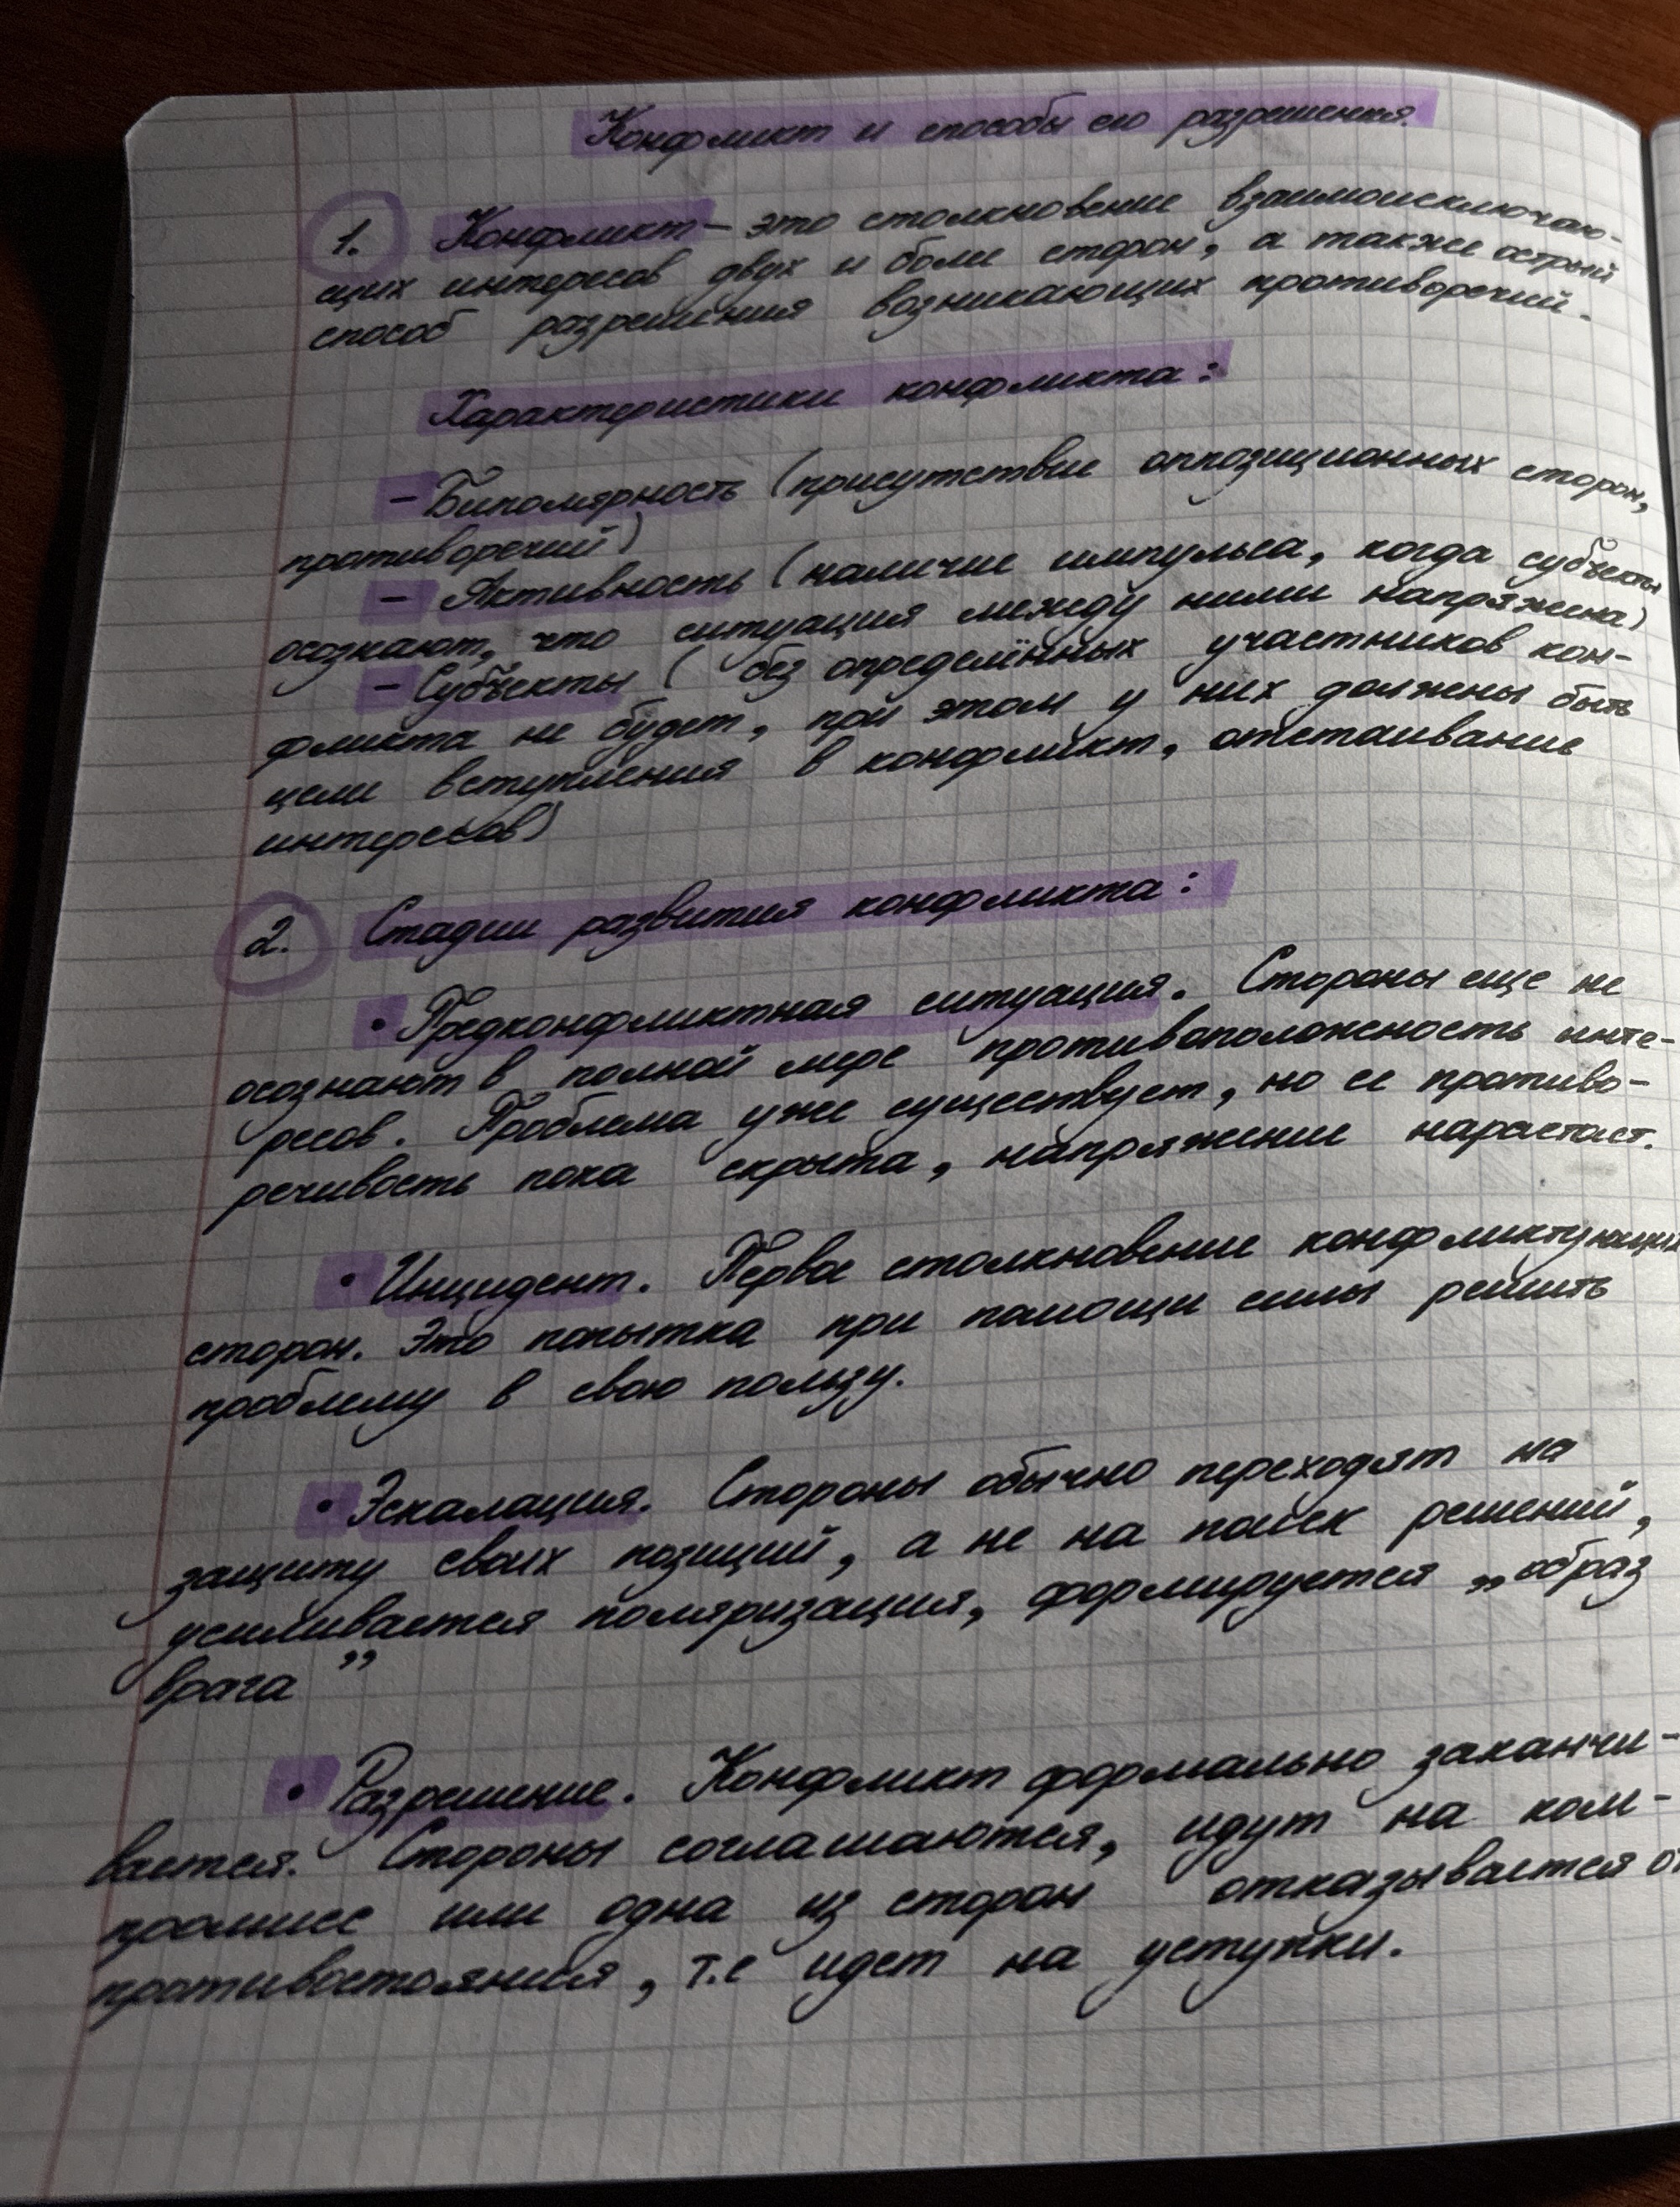 Конфликт и способы его разрешения.
1. Конфликт – это столкновение взаимоисключаю-
щих интересов двух и более сторон, а также острый
способ разрешения возникающих противоречий.
Характеристики конфликта:
– Биполярность (присутствие оппозиционных сторон,
противоречий)
– Активность (наличие импульса, когда субъекты
осознают, что ситуация между ними напряжена)
– Субъекты ( без определённых участников кон-
фликта не будет, при этом у них должны быть
цели вступления в конфликт, отстаивание
интересов)
2. Стадии развития конфликта:
• Предконфликтная ситуация. Стороны еще не
осознают в полной мере противоположность инте-
ресов. Проблема уже существует, но ее противо-
речивость пока скрыта, напряжение нарастает.
• Инцидент. Первое столкновение конфликтующих
сторон. Это попытка при помощи силы решить
проблему в свою пользу.
• Эскалация. Стороны обычно переходят на
защиту своих позиций, а не на поиск решений,
усиливается поляризация, формируется „образ
врага”
• Разрешение. Конфликт формально заканчи-
вается. Стороны соглашаются, идут на ком-
промисс или одна из сторон отказывается от
противостояния, т.е идет на уступки.